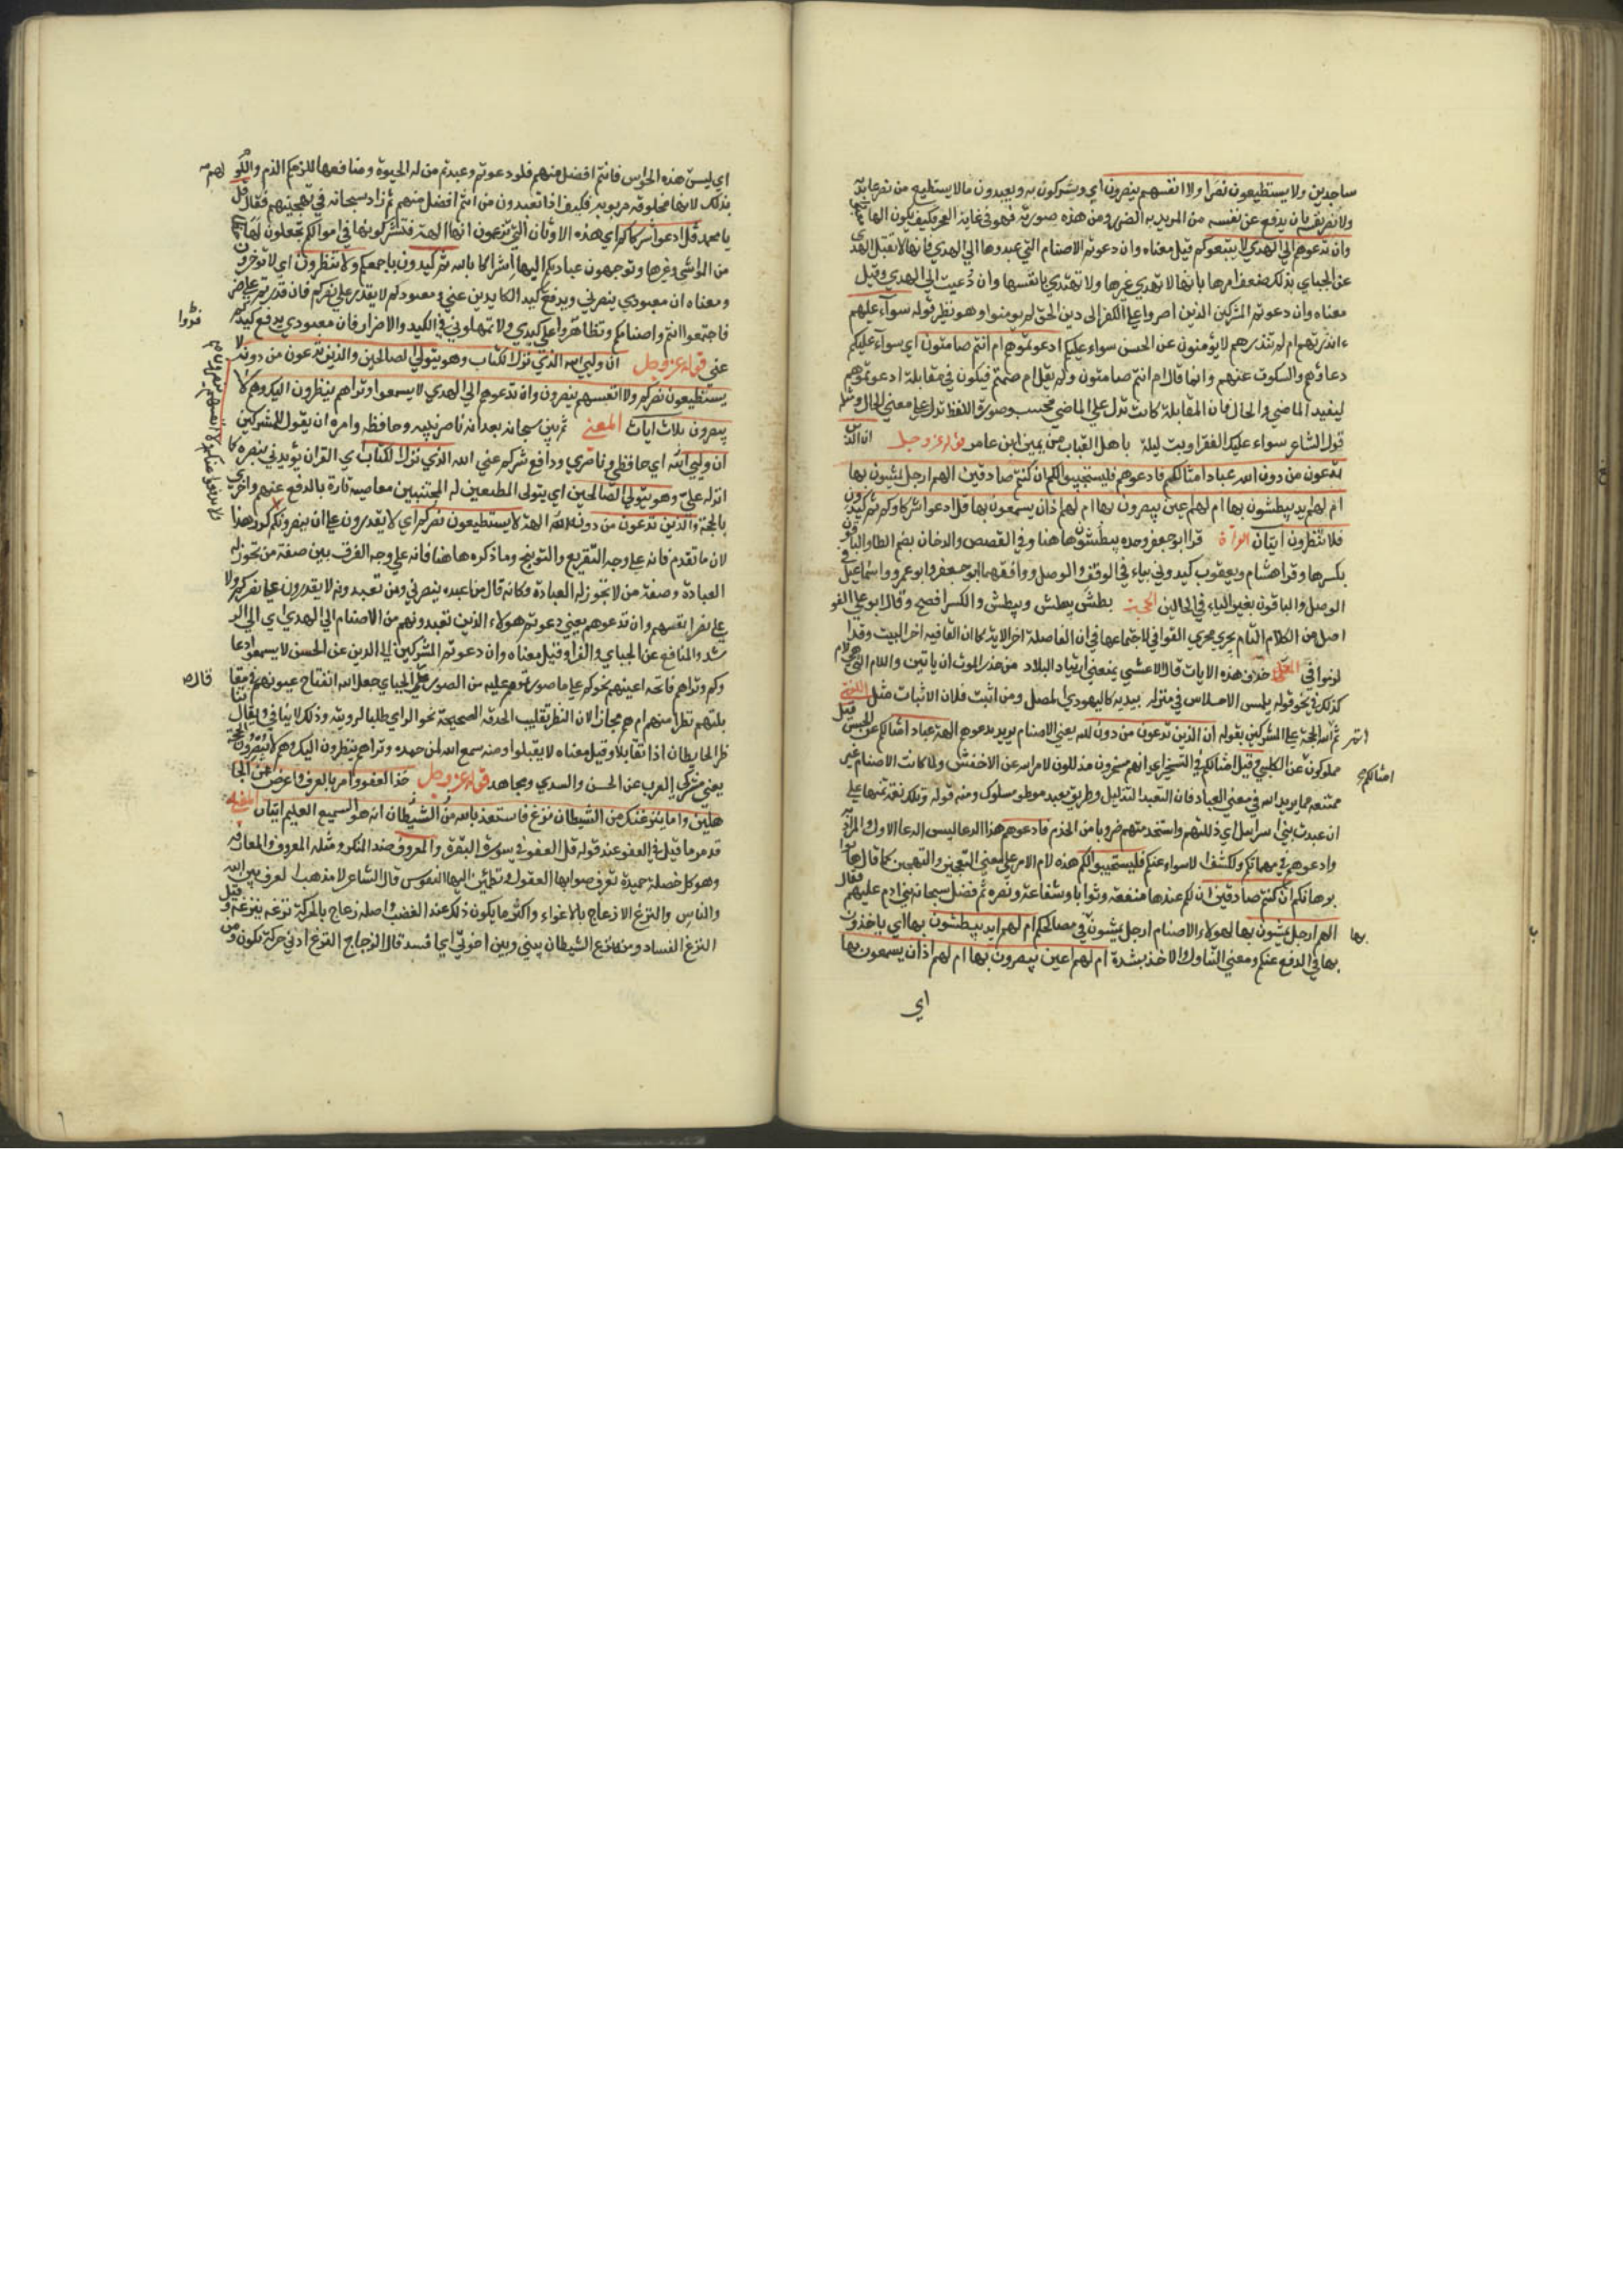 ساجدين ولا يستطيعون نصرا ولا انفسهم ينصرون اي ويشركون به ويعبدون مالا يستطيع من نصر عابديه
ولا نصر نفسه بان يدفع عن نفسه من اراد به الضر ومن هذه صورته فهو في غاية العجز فكيف يكون الها
وان تدعوهم الي الهدي لا يتبعوكم قيل معناه وان دعوتم الاصنام التي عبدوها الي الهدي فانها لا تقبل الهدي
عن الجباي بذلك ضعف امرها بانها لا تهدي غيرها ولا تهتدي بانفسها وان دُعيت الي الهدي وقيل
معناه وان دعوتم المشركين الذين اصروا علي الكفر الي دين الحق لم يومنوا وهو نظير قوله سوآء عليهم
ءانذرتهم ام لم تنذرهم لا يؤمنون عن الحسن سواء عليكم ادعوتموهم ام انتم صامتون اي سوآء عليكم
دعاؤهم والسكوت عنهم وانما قال ام انتم صامتون ولم يقل ام صمتم فيكون في مقابلة ادعوتموهم
ليفيد الماضي والحال فان المقابلة كانت تدل علي الماضي فحسب وصورة اللفظ تدل علي معني الحال ومثله
قول الشاعر سواء عليك الفقر او بت ليلة باهل القباب من يمين ابن عامر قوله عز وجل ان الذين
تدعون من دون الله عباد امثالكم فادعوهم فليستجيبوا لكم ان كنتم صادقين الهم ارجل يمشون بها
ام لهم ايد يبطشون بها ام لهم اعين يبصرون بها ام لهم اذان يسمعون بها قل ادعوا شركاوكم ثم كيدون
فلا تنظرون ايتان القراة قرا ابو جعفر وحده يبطُشون هاهنا وفي القصص والدخان بضم الطا والباقون
بكسرها وقرا هشام ويعقوب كيدوني بياء في الوقف والوصل ووافقهما ابو جعفر وابو عمرو واسماعيل في
الوصل والباقون بغير الياء في الحالين الحجة بطش يبطش ويبطش والكسر افصح وقال ابو علي الفو
اصل من الكلام التام يجري مجري القوافي لاجتماعها في ان الفاصلة اخر الاية كما ان القافية اخر البيت وقد
لزموا حذف هذه الايات قال الاعشي يمنعني ارتياد البلاد من حذر الموت ان ياتين والام التي
كذلك في نحو قوله يلمس الاحلاس في منزله بيديه كاليهودي المصل ومن اثبت فلان الاثبات مثل
ثم اتم الحجة علي المشركين بقوله ان الذين تدعون من دون الله يعني الاصنام يريد يدعوهم الهة عباد امثالكم عن الحسن
مملوكون عن الكلبي وقيل امثالكم في التسخير اي انهم مسخرون مذللون لامر الله عن الاخفش ولما كانت الاصنام غير
ممتنعة مما يريد الله في معني العباد فان التعبد التذليل وطريق معبد موطو مسلوك ومنه قوله وتلك نعمة تمنها علي
ان عبدت بني اسرائيل اي ذللتهم واستخدمتهم ضروبا من الخدم فادعوهم هذا الدعا ليس الدعا الاول والمراد
وادعوهم في مهماتكم ولكشف الاسواء عنكم فليستجيبوا لكم هذه لام الامر علي معني التعجيز والتهجين كما قال هاتوا
برهانكم ان كنتم صادقين ان لكم عندها منفعة وثوابا وشفاعة ونصرة ثم فضل سبحانه بني ادم عليهم فقال
الهم ارجل يمشون بها لهولاء الاصنام ارجل يمشون في مصالحكم ام لهم ايد يبطشون بها اي ياخذون
بها في الدفع عنكم ومعني التناول والاخذ بشدة ام لهم اعين يبصرون بها ام لهم اذان يسمعون بها
اي
امثالكم
بها
اي ليست هذه الحواس فانتم افضل منهم فلو دعوتم وعبدتم من له الحيوة ومنافعها للزمكم الذم واللوم
بذلك لانها مخلوقة مربوبة فكيف اذا تعبدون من انتم افضل منهم ثم زاد سبحانه في تهجينهم فقال قل
يا محمد قل ادعوا شركاكم اي هذه الاوثان التي تزعمون انها الهة فتشركونها في اموالكم تجعلون لها
من المواشي وغيرها وتوجهون عبادتكم اليها اشراكا بالله ثم كيدون باجمعكم ولا تنظرون اي لا توخرون
ومعناه ان معبودي ينصرني ويدفع كيد الكايدين عني ومعبودكم لا يقدر علي نصركم فان قدرتم علي ضر
فاجتمعوا انتم واصنامكم وتظاهروا علي كيدي ولا تمهلوني في الكيد والاضرار فان معبودي يدفع كيدكم
عني قوله عز وجل ان وليي الله الذي نزل الكتاب وهو يتولي الصالحين والذين تدعون من دونه لا
يستطيعون نصركم ولا انفسهم ينصرون وان تدعوهم الي الهدي لا يسمعوا وتراهم ينظرون اليك وهم لا
يبصرون ثلاث ايات المعني ثم بين سبحانه بعد انه ناصر نبيه وحافظه وامره ان يقول للمشركين
ان وليي الله اي حافظي وناصري ودافع شركم عني الله الذي نزل الكتاب اي القران يؤيدني بنصره كما
انزله علي وهو يتولي الصالحين اي يتولي المطيعين له المجتنبين معاصيه تارة بالدفع عنهم واخري
بالحجة والذين تدعون من دون الله الهة لا يستطيعون نصركم اي لا يقدرون علي ان ينصرونكم كرر هذا
لان ما تقدم فانه علي وجه التقريع والتوبيخ وما ذكره هاهنا فانه علي وجه الفرق بين صفة من تجوز له
العبادة وصفة من لا تجوز له العبادة وكانه قال من اعبده ينصرني ومن تعبدونه لا يقدرون علي نصركم ولا
علي نصر انفسهم وان تدعوهم يعني دعوتم هولاء الذين تعبدونهم من الاصنام الي الهدي اي الي الر
شد والمنافع عن الجباي والفرا وقيل معناه وان دعوتم المشركين الي الدين عن الحسن لا يسمعوا دعا
وكم وتراهم فاتحه اعينهم نحوكم علي ما صورتموهم عليه من الصور عن الجباي جعل الله انفتاح عيونهم في مقا
بلتهم نظرا منهم اليهم مجازا لان النظر تقليب الحدقة الصحيحة نحو المراي طلبا للروية وذلك لا يتاتي ويقال تنا
ظر الحايطان اذا تقابلا وقيل معناه لا يقبلوا ومنه سمع الله لمن حمده وتراهم ينظرون اليك وهم لا يبصرون الحجة
يعني مشركي العرب عن الحسن والسدي ومجاهد قوله عز وجل خذ العفو وامر بالعرف واعرض عن الجا
هلين واما ينزغنك من الشيطان نزغ فاستعذ بالله من الشيطان انه هو السميع العليم ايتان
قد مر ما قيل في العفو عند قوله قل العفو في سورة البقرة والمعروف ضد المنكر ومثله المعروف والمعارفة
وهو كل خصلة حميدة تعرف صوابها العقول وتطمئن اليها النفوس قال الشاعر لا مذهب العرف بين الله
والناس والنزغ الازعاج بالاغواء واكثر ما يكون ذلك عند الغضب واصله ازعاج بالحركة نزغه ينزغه وقيل
النزغ الفساد ومنه نزغ الشيطان بيني وبين اخوتي اي افسد قال الزجاج النزغ ادني حركة تكون ومن